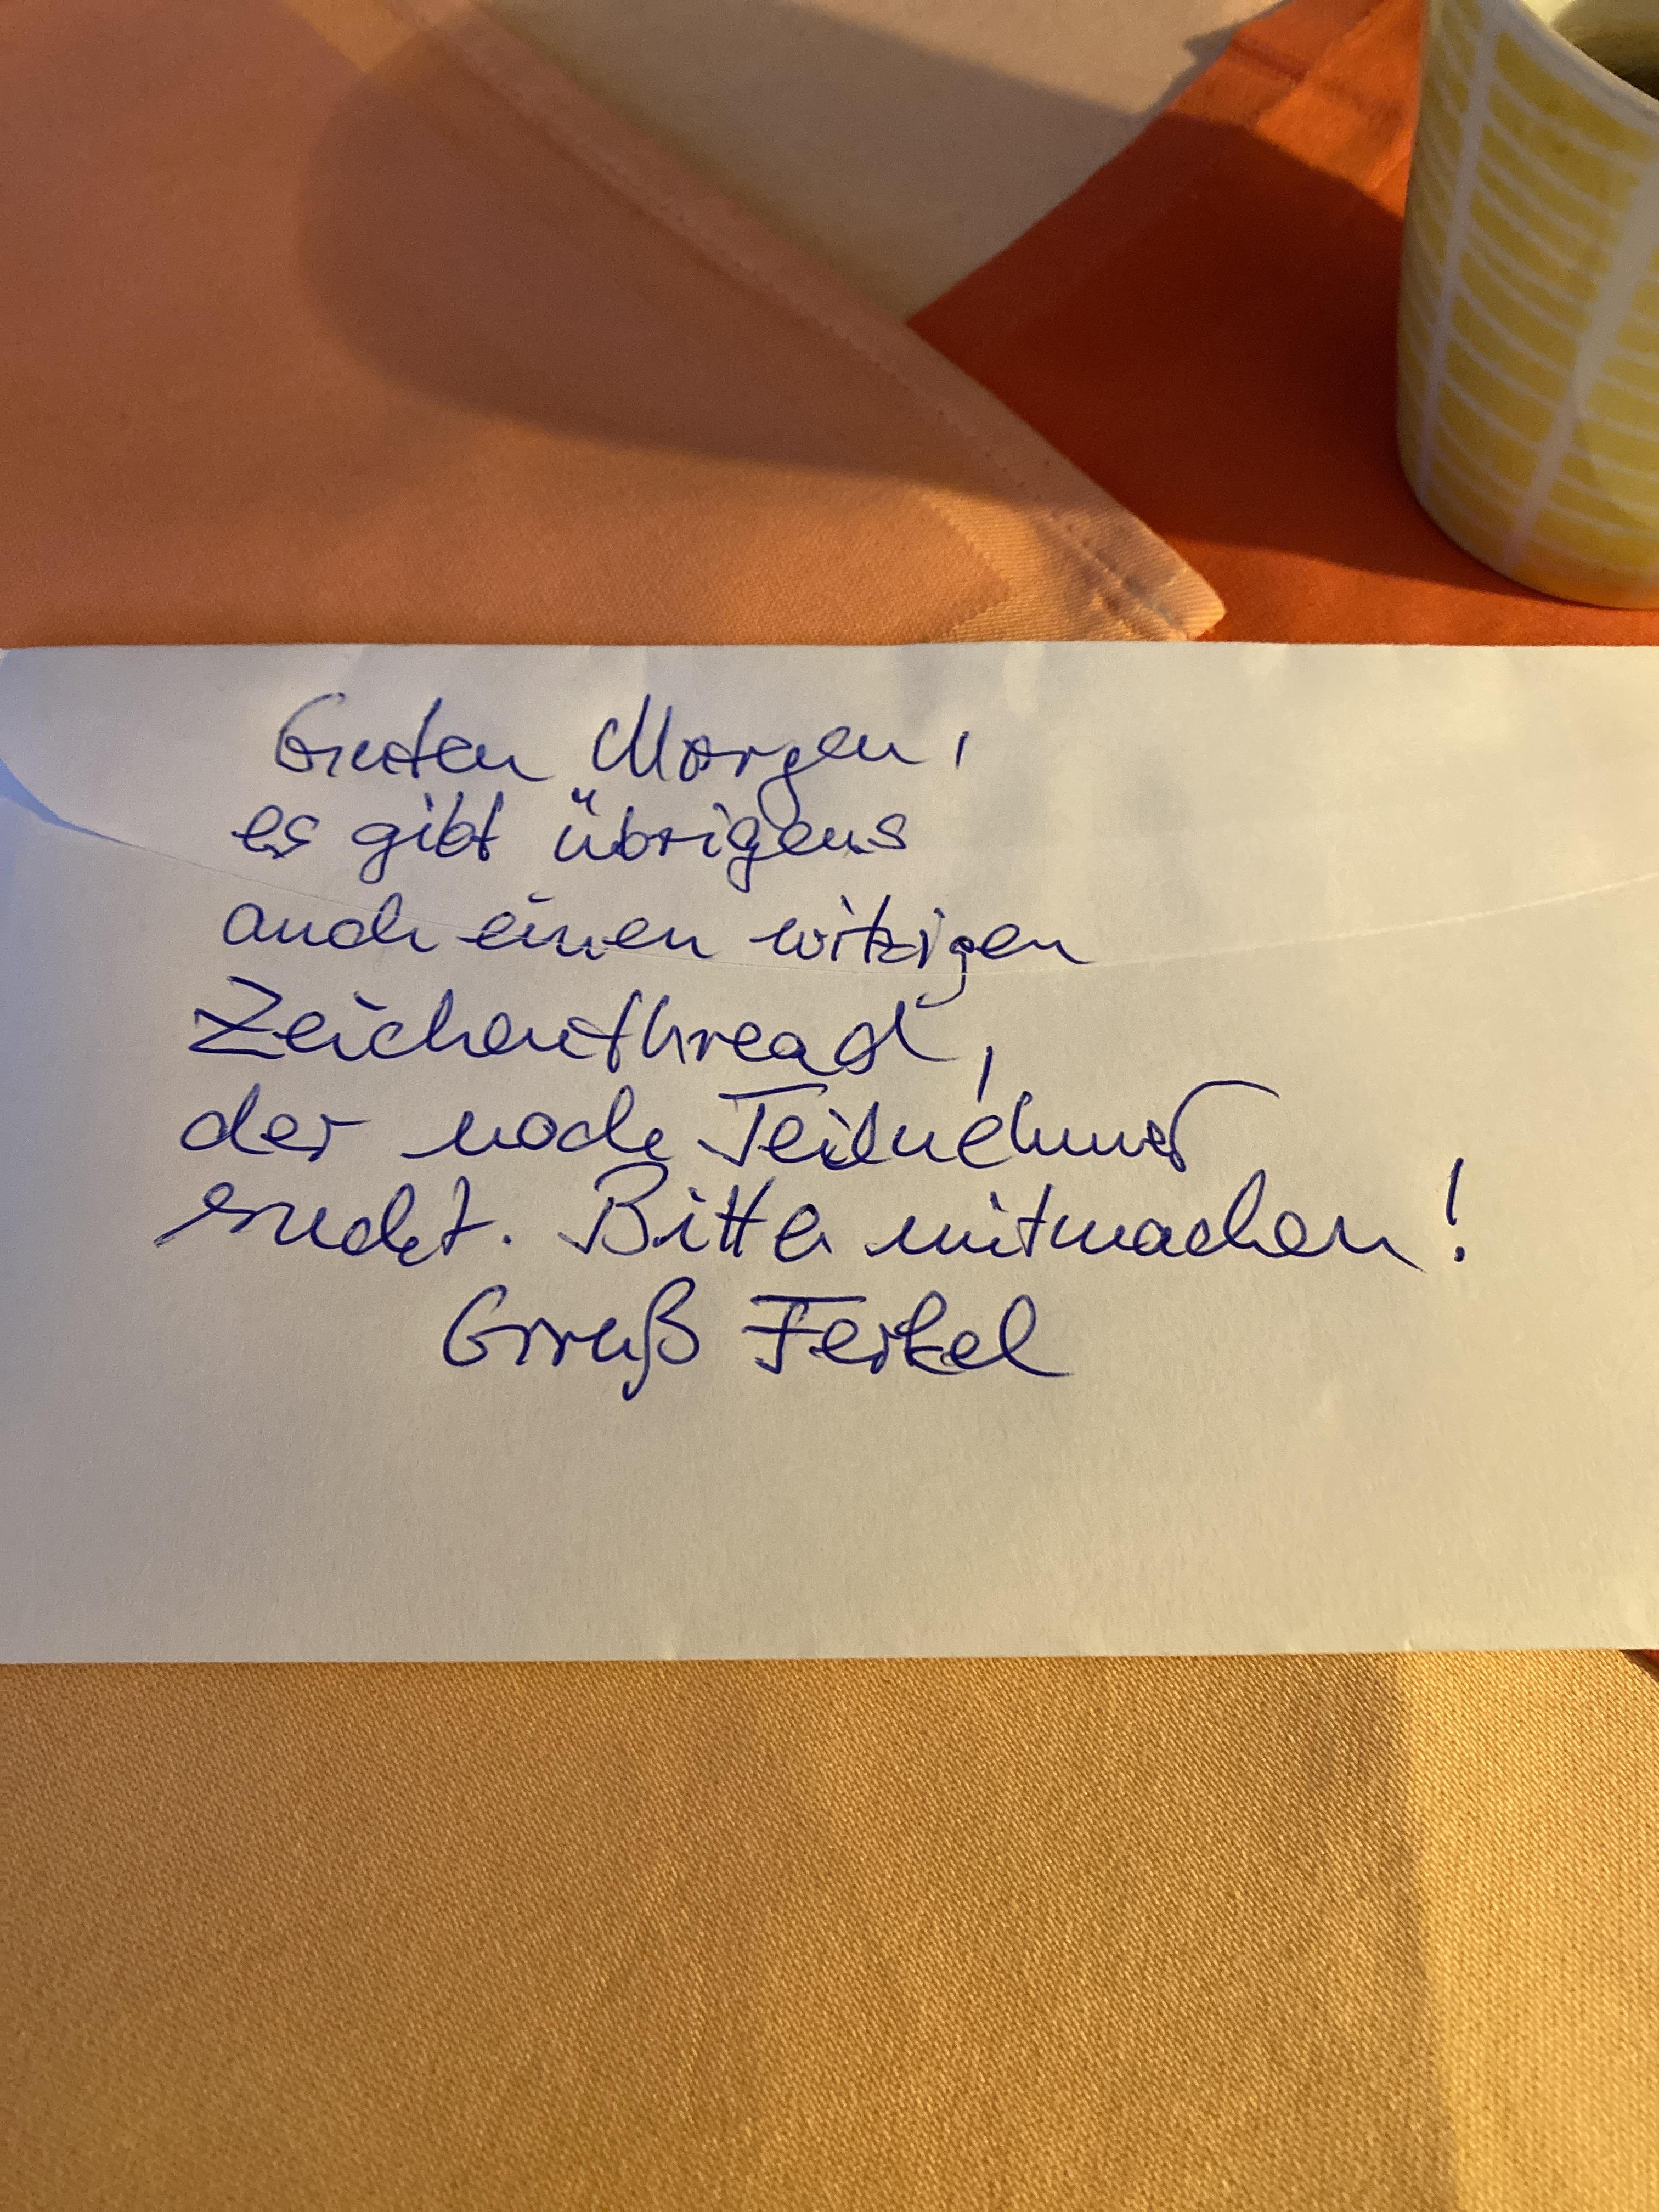 Guten Morgen,
es gibt übrigens
auch einen witzigen
Zeichenthread,
der noch Teilnehmer
sucht. Bitte mitmachen!
Gruß Ferkel